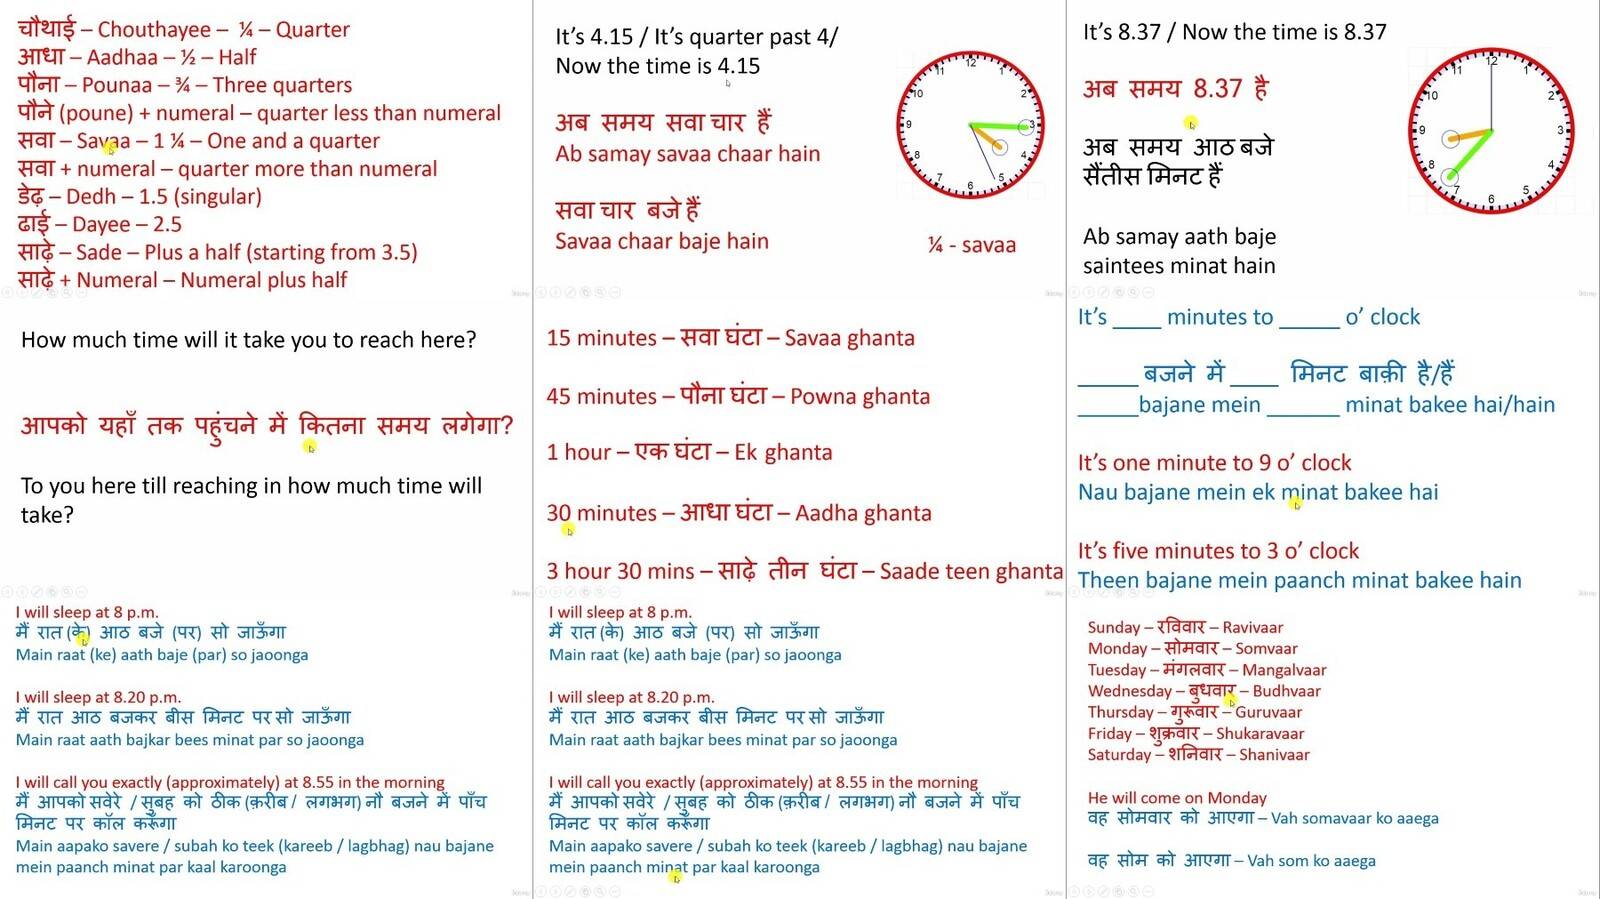 चौथाई – Chouthayee – ¼ – Quarter
आधा – Aadhaa – ½ – Half
पौना – Pounaa – ¾ – Three quarters
पौने (poune) + numeral – quarter less than numeral
सवा – Savaa – 1 ¼ – One and a quarter
सवा + numeral – quarter more than numeral
डेढ़ – Dedh – 1.5 (singular)
ढाई – Dayee – 2.5
साढ़े – Sade – Plus a half (starting from 3.5)
साढ़े + Numeral – Numeral plus half
It’s 4.15 / It’s quarter past 4/
Now the time is 4.15
अब समय सवा चार हैं
Ab samay savaa chaar hain
सवा चार बजे हैं
Savaa chaar baje hain
12
1
2
3
4
5
6
7
8
9
10
11
¼ - savaa
It’s 8.37 / Now the time is 8.37
अब समय 8.37 है
अब समय आठ बजे
सैंतीस मिनट हैं
Ab samay aath baje
saintees minat hain
12
1
2
3
4
5
6
7
8
9
10
11
How much time will it take you to reach here?
आपको यहाँ तक पहुंचने में कितना समय लगेगा?
To you here till reaching in how much time will
take?
15 minutes – सवा घंटा – Savaa ghanta
45 minutes – पौना घंटा – Powna ghanta
1 hour – एक घंटा – Ek ghanta
30 minutes – आधा घंटा – Aadha ghanta
3 hour 30 mins – साढ़े तीन घंटा – Saade teen ghanta
It’s ____ minutes to _____ o’ clock
_____ बजने में ____ मिनट बाक़ी है/हैं
_____bajane mein ______ minat bakee hai/hain
It’s one minute to 9 o’ clock
Nau bajane mein ek minat bakee hai
It’s five minutes to 3 o’ clock
Theen bajane mein paanch minat bakee hain
I will sleep at 8 p.m.
मैं रात (के) आठ बजे (पर) सो जाऊँगा
Main raat (ke) aath baje (par) so jaoonga
I will sleep at 8.20 p.m.
मैं रात आठ बजकर बीस मिनट पर सो जाऊँगा
Main raat aath bajkar bees minat par so jaoonga
I will call you exactly (approximately) at 8.55 in the morning
मैं आपको सवेरे / सुबह को ठीक (क़रीब / लगभग) नौ बजने में पाँच
मिनट पर कॉल करूँगा
Main aapako savere / subah ko teek (kareeb / lagbhag) nau bajane
mein paanch minat par kaal karoonga
I will sleep at 8 p.m.
मैं रात (के) आठ बजे (पर) सो जाऊँगा
Main raat (ke) aath baje (par) so jaoonga
I will sleep at 8.20 p.m.
मैं रात आठ बजकर बीस मिनट पर सो जाऊँगा
Main raat aath bajkar bees minat par so jaoonga
I will call you exactly (approximately) at 8.55 in the morning
मैं आपको सवेरे / सुबह को ठीक (क़रीब / लगभग) नौ बजने में पाँच
मिनट पर कॉल करूँगा
Main aapako savere / subah ko teek (kareeb / lagbhag) nau bajane
mein paanch minat par kaal karoonga
Sunday – रविवार – Ravivaar
Monday – सोमवार – Somvaar
Tuesday – मंगलवार – Mangalvaar
Wednesday – बुधवार – Budhvaar
Thursday – गुरूवार – Guruvaar
Friday – शुक्रवार – Shukaravaar
Saturday – शनिवार – Shanivaar
He will come on Monday
वह सोमवार को आएगा – Vah somavaar ko aaega
वह सोम को आएगा – Vah som ko aaega